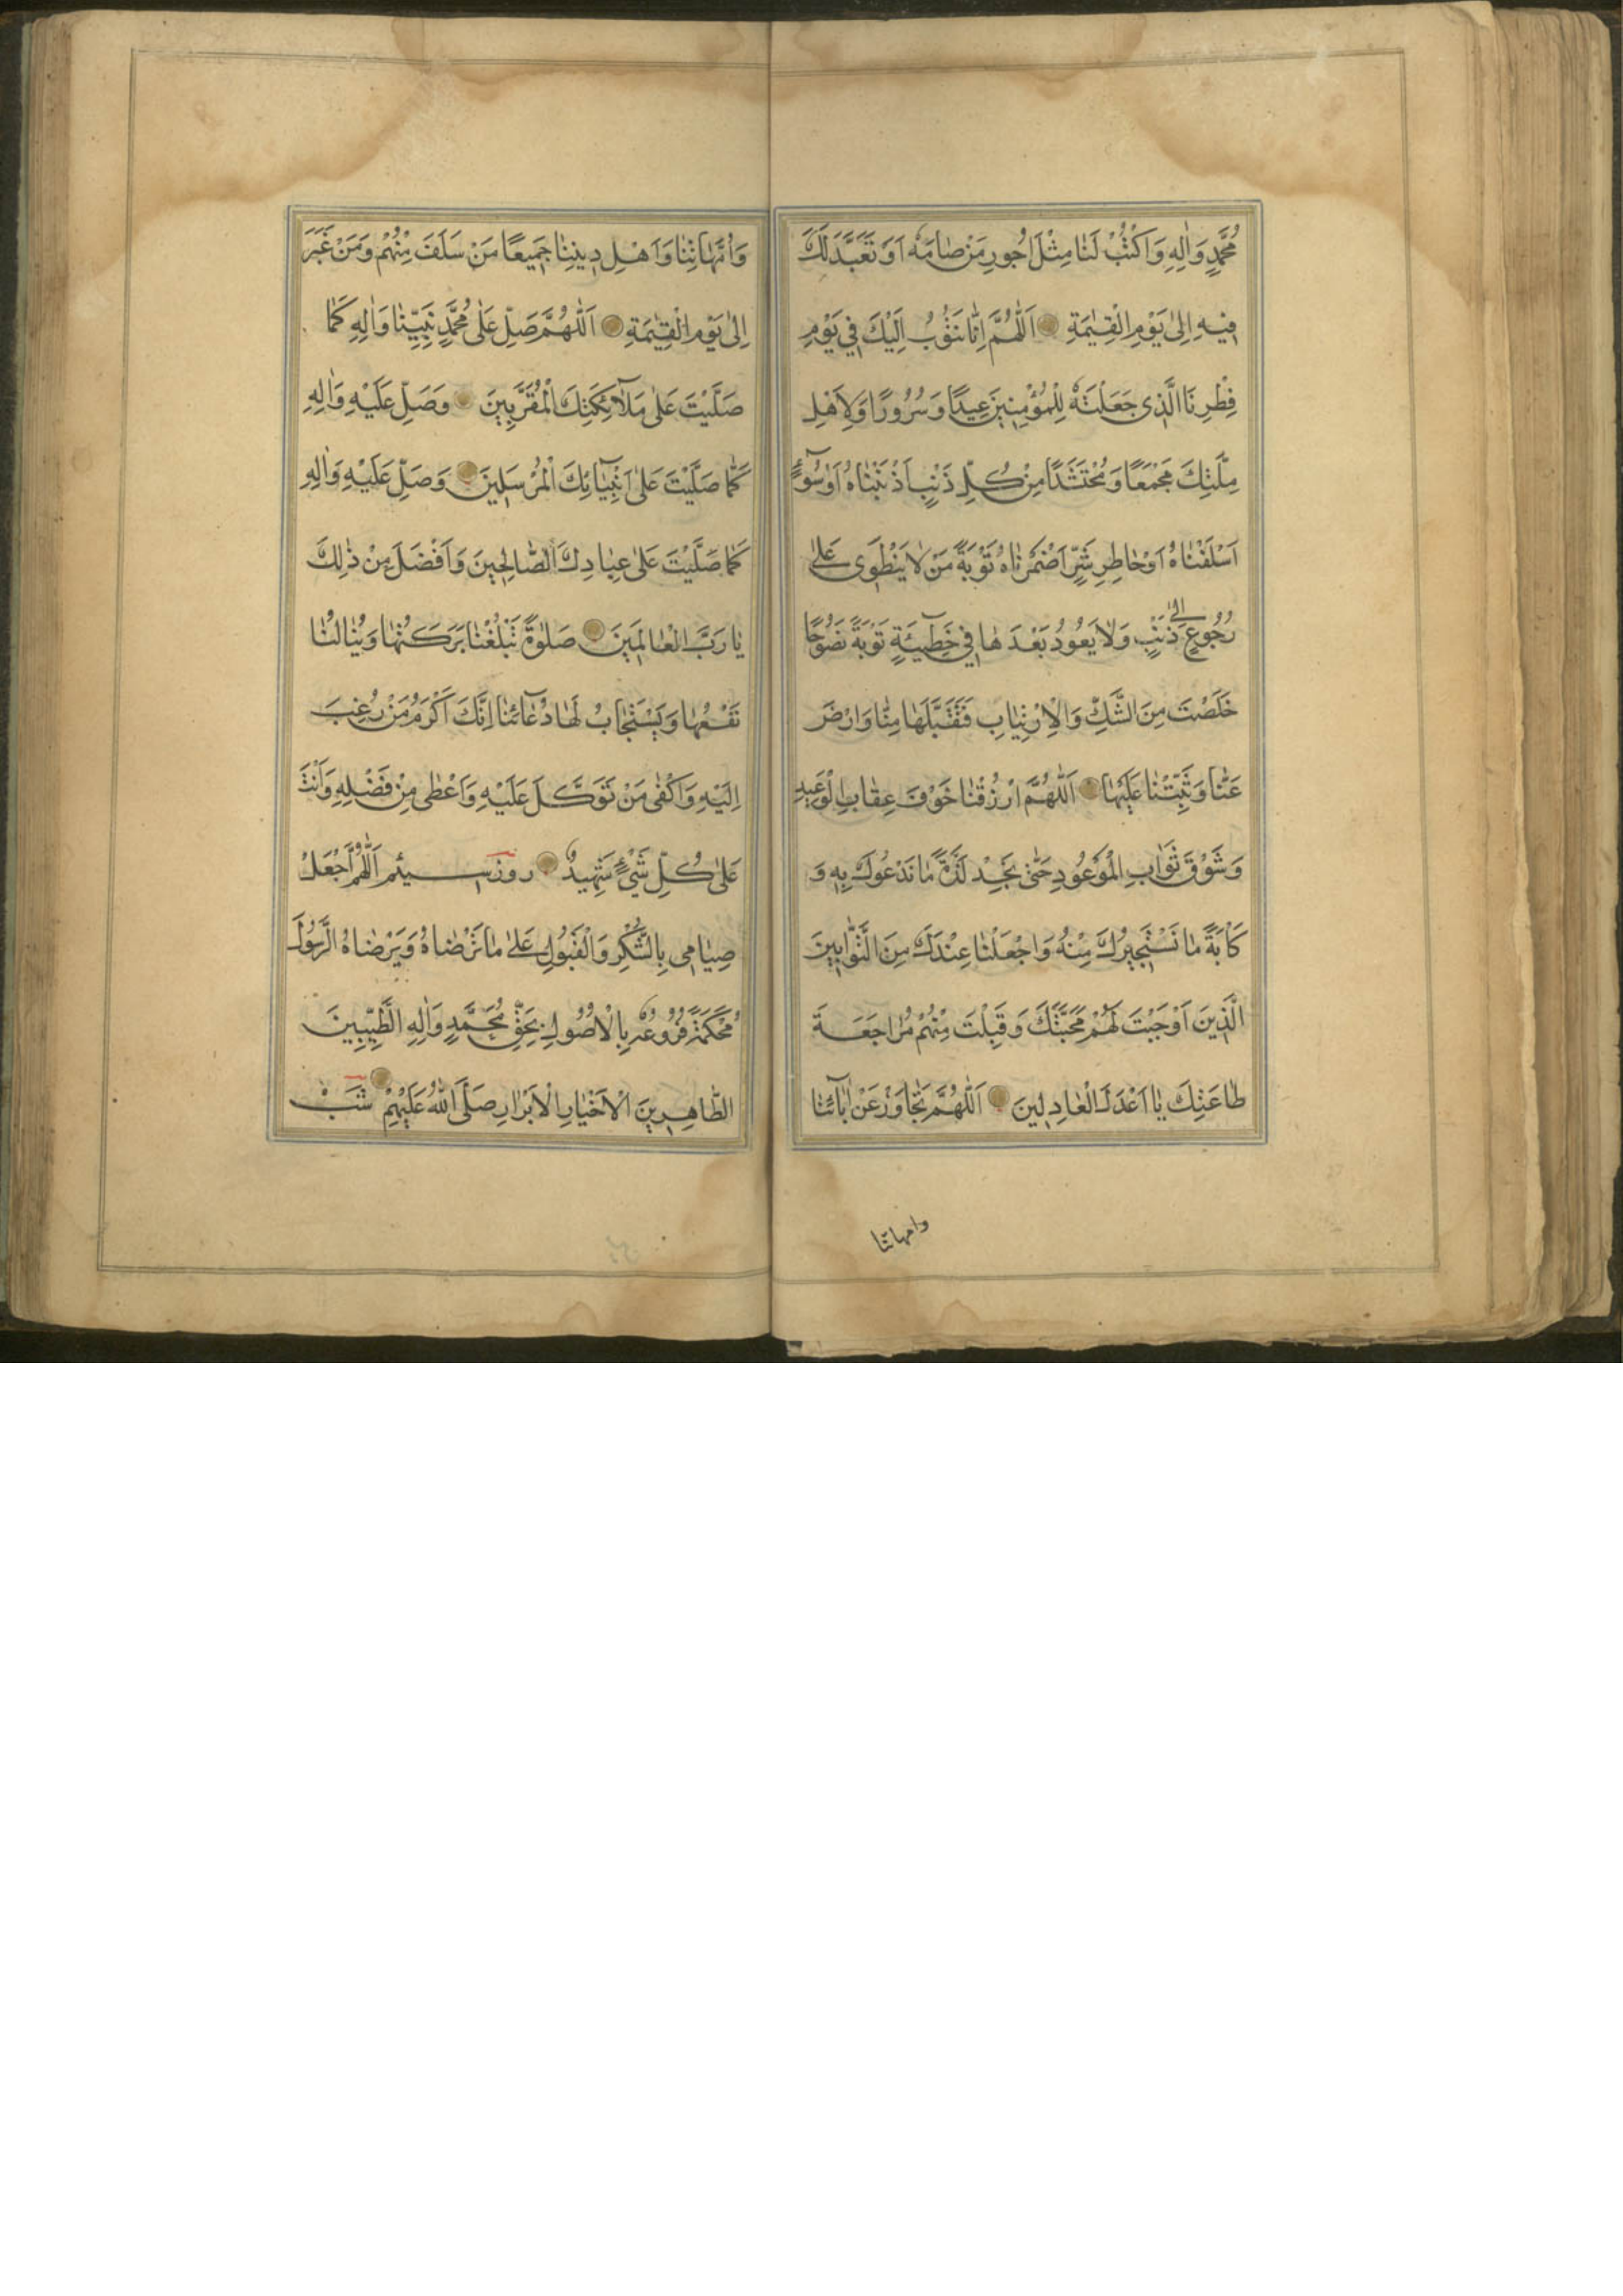 مُحَمَّدٍ وَاٰلِهِ وَاكْتُبْ لَنٰا مِثْلَ اُجُورِ مَنْ صٰامَهُ اَوْ تَعَبَّدَ لَكَ
فِيْهِ اِلىٰ يَوْمِ الْقِيٰمَةِ اَللّٰهُمَّ اِنّٰا نَتُوْبُ اِلَيْكَ فِي يَوْمِ
فِطْرِنَا الَّذِى جَعَلْتَهُ لِلْمُؤْمِنِينَ عِيدًا وَسُرُورًا وَلِاَهْلِ
مِلَّتِكَ مَجْمَعًا وَمُحْتَشَدًا مِنْ كُلِّ ذَنْبٍ اَذْنَبْنٰاهُ اَوْ سُوۤءٍ
اَسْلَفْنٰاهُ اَوْ خٰاطِرِ شَرٍّ اَضْمَرْنٰاهُ تَوْبَةَ مَنْ لٰا يَنْطَوِى عَلىٰ
رُجُوعٍ اِلىٰ ذَنْبٍ وَلٰا يَعُودُ بَعْدَهٰا فِي خَطِۤيئَةٍ تَوْبَةً نَصُوحًا
خَلَصْتَ مِنَ الشَّكِّ وَالْاِرْتِيٰابِ فَتَقَبَّلْهٰا مِنّٰا وَارْضَ
عَنّٰا وَثَبِّتْنٰا عَلَيْهٰا اَللّٰهُمَّ ارْزُقْنٰا خَوْفَ عِقٰابِ الْوَعِيدِ
وَشَوْقَ ثَوٰابِ الْمَوْعُودِ حَتّٰى نَجِدَ لَذَّةَ مٰا نَدْعُوكَ بِهِ وَ
كَاٰبَةَ مٰا نَسْتَجِيرُكَ مِنْهُ وَاجْعَلْنٰا عِنْدَكَ مِنَ التَّوّٰابِينَ
الَّذِينَ اَوْجَبْتَ لَهُمْ مَحَبَّتَكَ وَقَبِلْتَ مِنْهُمْ مُرٰاجَعَةَ
طٰاعَتِكَ يٰا اَعْدَلَ الْعٰادِلِينَ اَللّٰهُمَّ تَجٰاوَزْ عَنْ اٰبٰۤائِنٰا
وامهاتنا
وَاُمَّهٰاتِنٰا وَاَهْلِ دِينِنٰا جَمِيعًا مَنْ سَلَفَ مِنْهُمْ وَمَنْ غَبَرَ
اِلىٰ يَوْمِ الْقِيٰمَةِ اَللّٰهُمَّ صَلِّ عَلٰى مُحَمَّدٍ نَبِيِّنٰا وَاٰلِهِ كَمٰا
صَلَّيْتَ عَلٰى مَلٰۤائِكَتِكَ الْمُقَرَّبِينَ وَصَلِّ عَلَيْهِ وَاٰلِهِ
كَمٰا صَلَّيْتَ عَلٰى اَنْبِيٰۤائِكَ الْمُرْسَلِينَ وَصَلِّ عَلَيْهِ وَاٰلِهِ
كَمٰا صَلَّيْتَ عَلٰى عِبٰادِكَ الصّٰالِحِينَ وَاَفْضَلَ مِنْ ذٰلِكَ
يٰا رَبَّ الْعٰالَمِينَ صَلٰوةً تَبْلُغُنٰا بَرَكَتُهٰا وَيَنٰالُنٰا
نَفْعُهٰا وَيُسْتَجٰابُ لَهٰا دُعٰۤائُنٰا اِنَّكَ اَكْرَمُ مَنْ رُغِبَ
اِلَيْهِ وَاَكْفٰى مَنْ تَوَكَّلَ عَلَيْهِ وَاَعْطٰى مِنْ فَضْلِهِ وَاَنْتَ
عَلٰى كُلِّ شَيْءٍ شَهِيدٌ روز سيئم اَللّٰهُمَّ اجْعَلْ
صِيٰامِى بِالشُّكْرِ وَالْقَبُولِ عَلىٰ مٰا تَرْضٰاهُ وَيَرْضٰاهُ الرَّسُولُ
مُحْكَمَةً فُرُوعُهُ بِالْاُصُولِ بِحَقِّ مُحَمَّدٍ وَاٰلِهِ الطَّيِّبِينَ
الطّٰاهِرِينَ الْاَخْيٰارِ الْاَبْرٰارِ صَلَّى اللّٰهُ عَلَيْهِمْ شَبْ